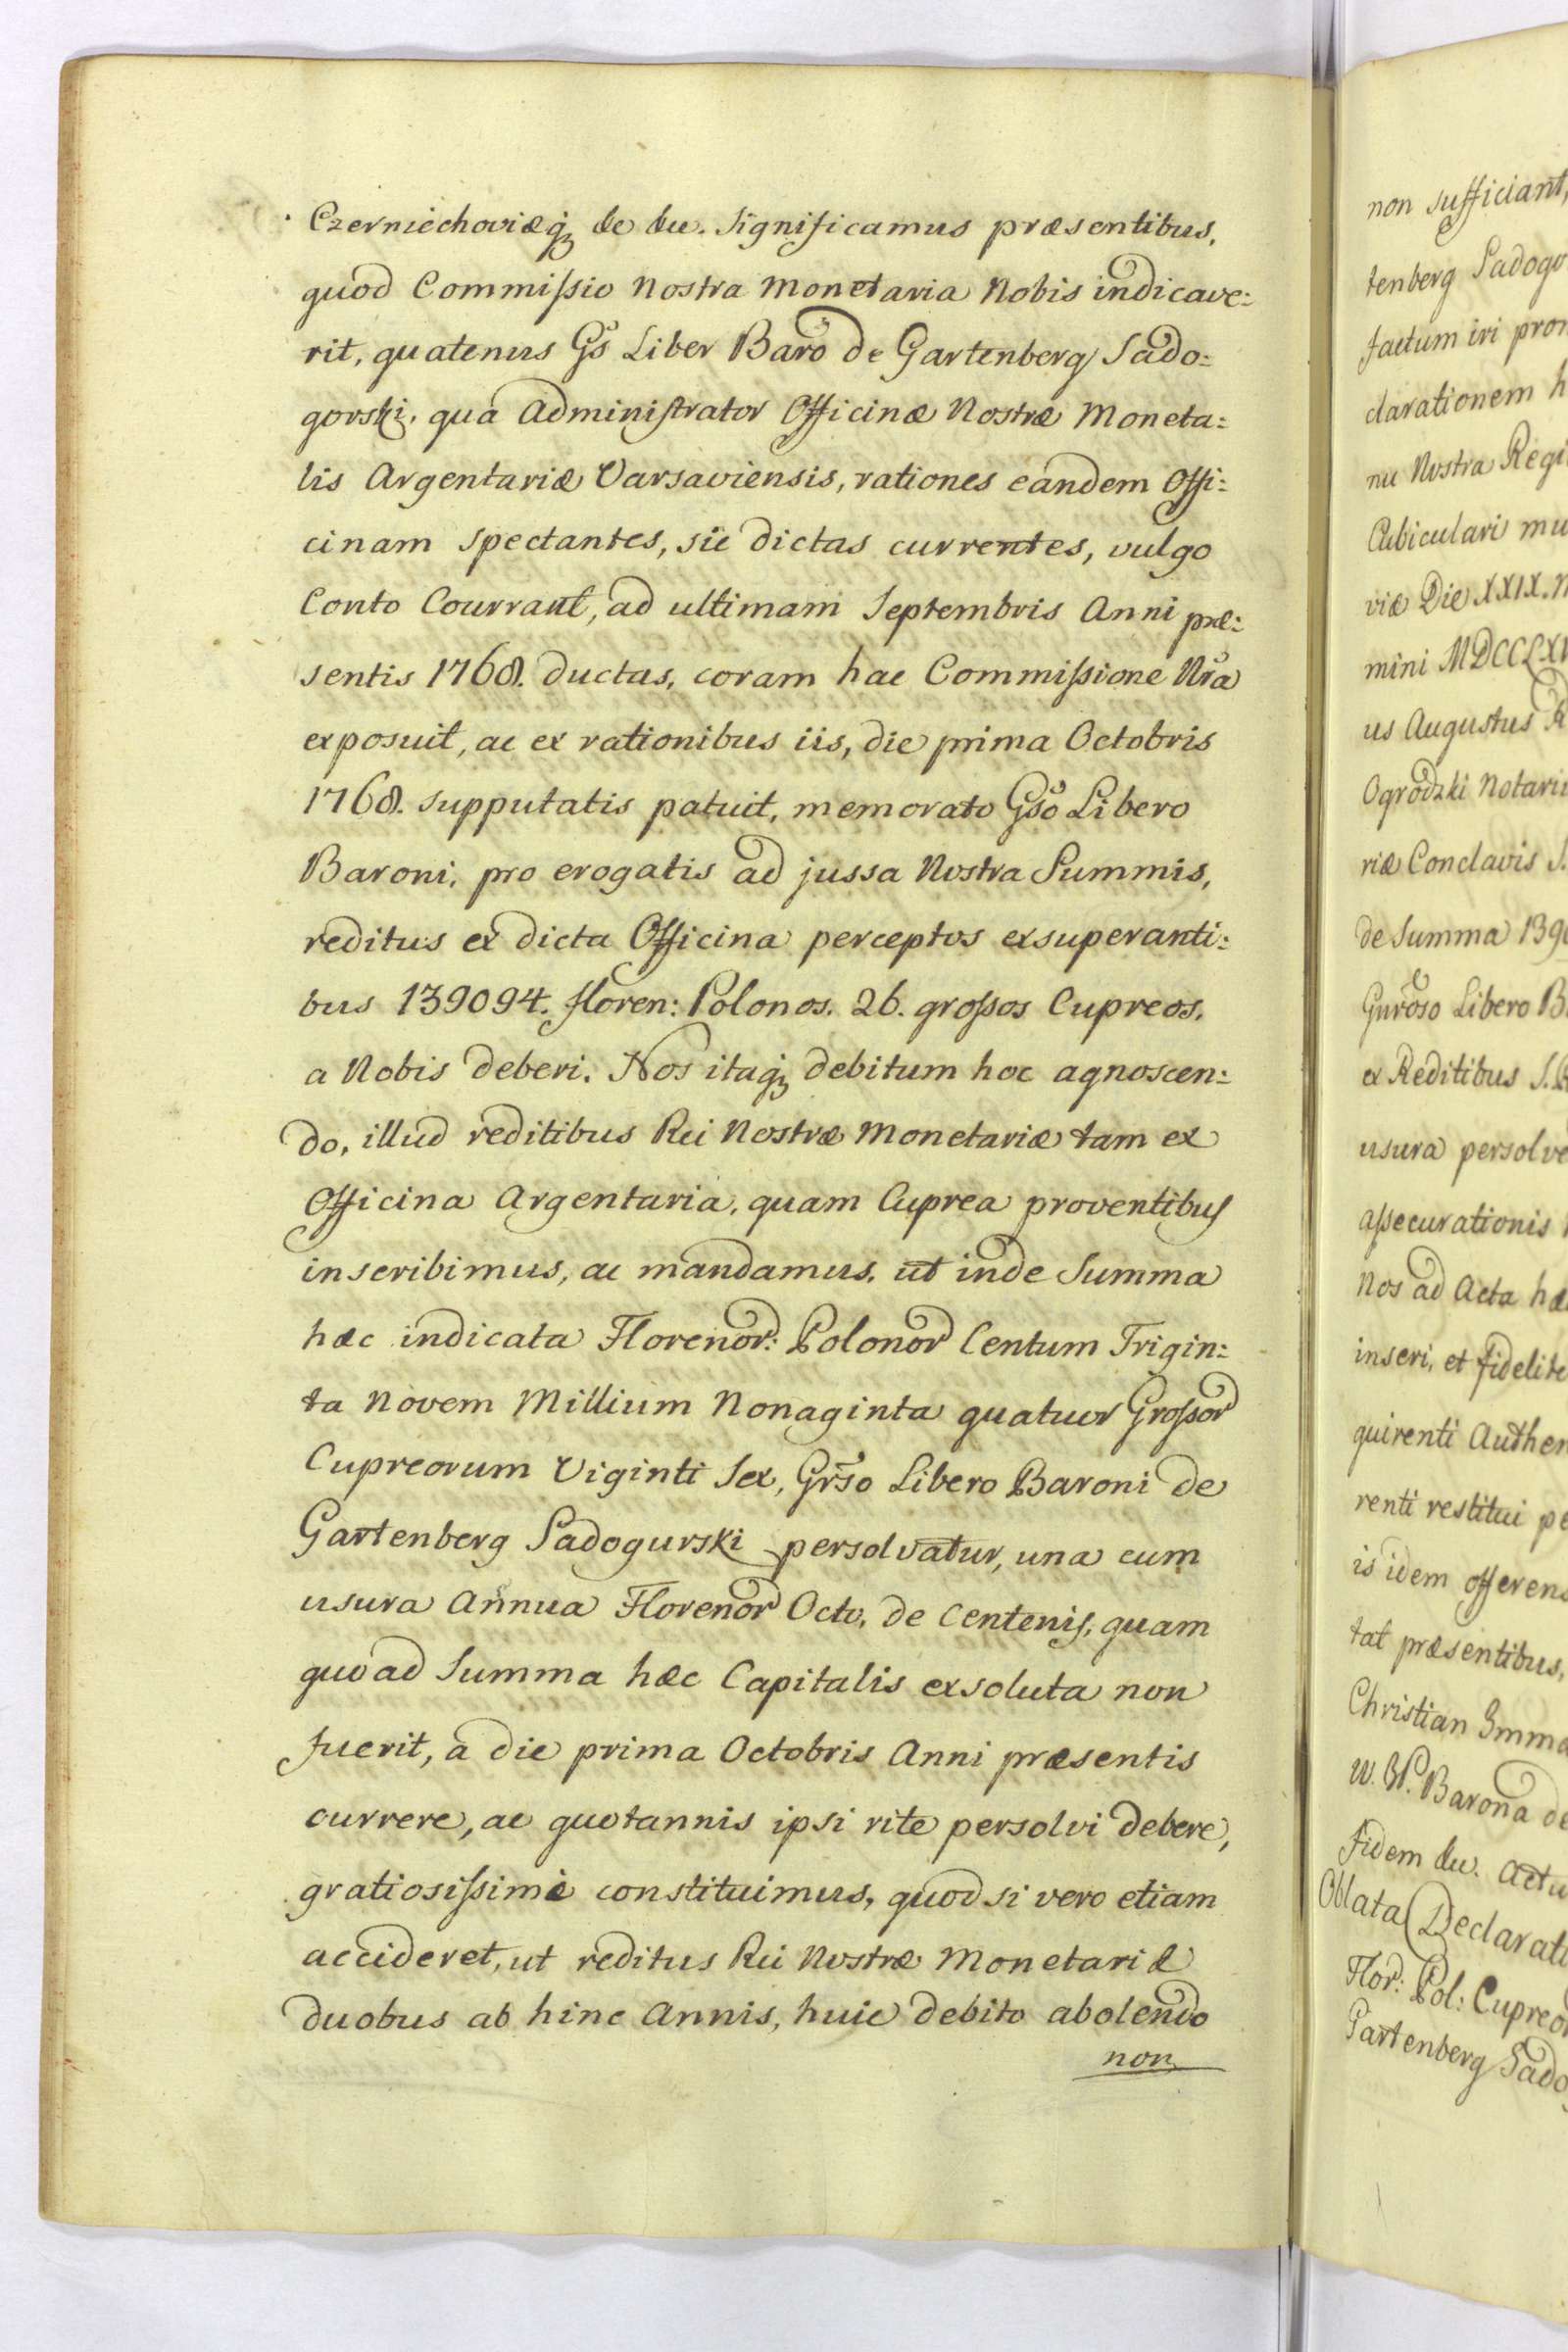 Czerniechoviæq; &c &c. Significamus præsentibus,
quod Commissio Nostra Monetaria Nobis indicave:
rit, quatenus Gs Liber Baro de Gartenberg Sado:
gorski, qua Administrator Officinæ Nostræ Moneta:
lis Argentariæ Varsaviensis, rationes eandem Offi:
cinam spectantes, sic dictas currentes, vulgo
Conto Courrant, ad ultimam Septembris Anni præ:
sentis 1768. ductas, coram hac Commissione Nra
exposuit, ac ex rationibus iis, die prima Octobris
1768. supputatis patuit, memorato Gso Libero
Baroni, pro erogatis ad jussa Nostra Summis,
reditus ex dicta Officina perceptos exsuperanti:
bus 139094. floren: Polonos. 26. grossos Cupreos,
a Nobis deberi. Nos itaq; debitum hoc agnoscen:
do, illud reditibus Rei Nostræ Monetariæ tam ex
Officina Argentaria, quam Cuprea proventibus
inscribimus, ac mandamus, ut inde Summa
hæc indicata Florenor: Polonor Centum Trigin:
ta Novem Millium Nonaginta quatuor Grossor
Cupreorum Viginti Sex, Grso Libero Baroni de
Gartenberg Sadogurski persolvatur, una cum
usura Annua Florenor Octo, de Centenis, quam
quoad Summa hæc Capitalis exsoluta non
fuerit, a die prima Octobris Anni præsentis
currere, ac quotannis ipsi rite persolvi debere,
gratiosissime constituimus, quod si vero etiam
accideret, ut reditus Rei Nostræ Monetariæ
duobus ab hinc Annis, huic debito abolendo
non
non sufficiant,
tenberg Sadogu
factum iri pro
clarationem h
nu Nostra Regi
Cubiculari mu
viæ Die XXIX. N
mini MDCCLXV
us Augustus R
Ogrodzki Notari
riæ Conclavis S.
de Summa 1390
Gnroso Libero B
ex Reditibus S. R
usura persolve
assecurationis
Nos ad Acta hæ
inseri, et fidelite
quirenti Authen
renti restitui pe
is idem offerens
tat præsentibus,
Christian Imma
W. JP. Barona de
fidem &c. Actu
Oblata Declarati
Flor: Pol: Cupreor
Gartenberg Sado